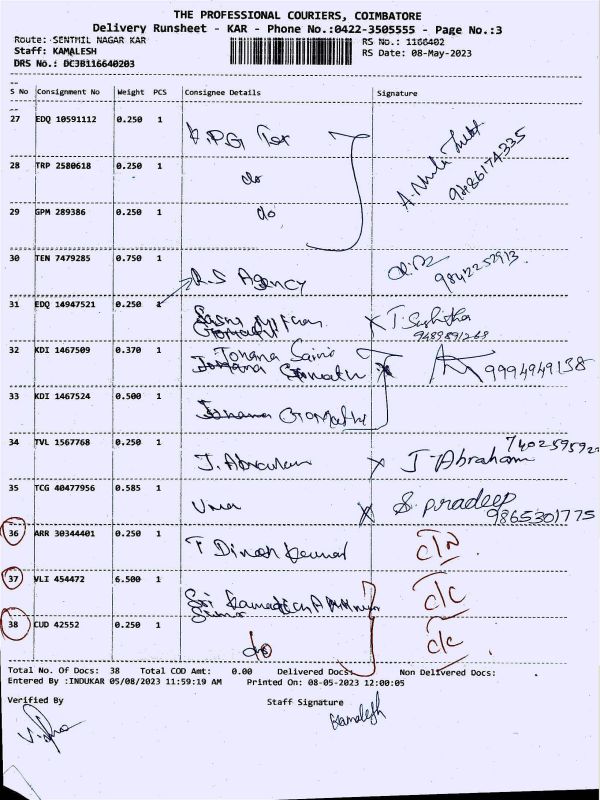 THE PROFESSIONAL COURIERS, COIMBATORE
Delivery Runsheet - KAR - Phone No.:0422-3505555 - Page No.:3
Route: SENTHIL NAGAR KAR RS No.: 1166402
Staff: KAMALESH RS Date: 08-May-2023
DRS No.: DC3B116640203
S No Consignment No Weight PCS Consignee Details Signature
27 EDQ 10591112 0.250 1 PG Tex
28 TRP 2580618 0.250 1 do 9486174335
29 GPM 289386 0.250 1 do
30 TEN 7479285 0.750 1 R.S Agency 9842252913
31 EDQ 14947521 0.250 1 X T. Sushitha
9489891268
32 KDI 1467509 0.370 1 Johana 9994949138
33 KDI 1467524 0.500 1 Johana Gomathi
34 TVL 1567768 0.250 1 J. Abraham X J. Abraham 740259592
35 TCG 40477956 0.585 1 Uma X S. pradeep
9865301775
36 ARR 30344401 0.250 1 T Dinesh Kumar C/N
37 VLI 454472 6.500 1 Sri C/C
38 CUD 42552 0.250 1 do C/C
Total No. Of Docs: 38 Total COD Amt: 0.00 Delivered Docs: Non Delivered Docs:
Entered By :INDUKAR 05/08/2023 11:59:19 AM Printed On: 08-05-2023 12:00:05
Verified By Staff Signature
Kamalesh